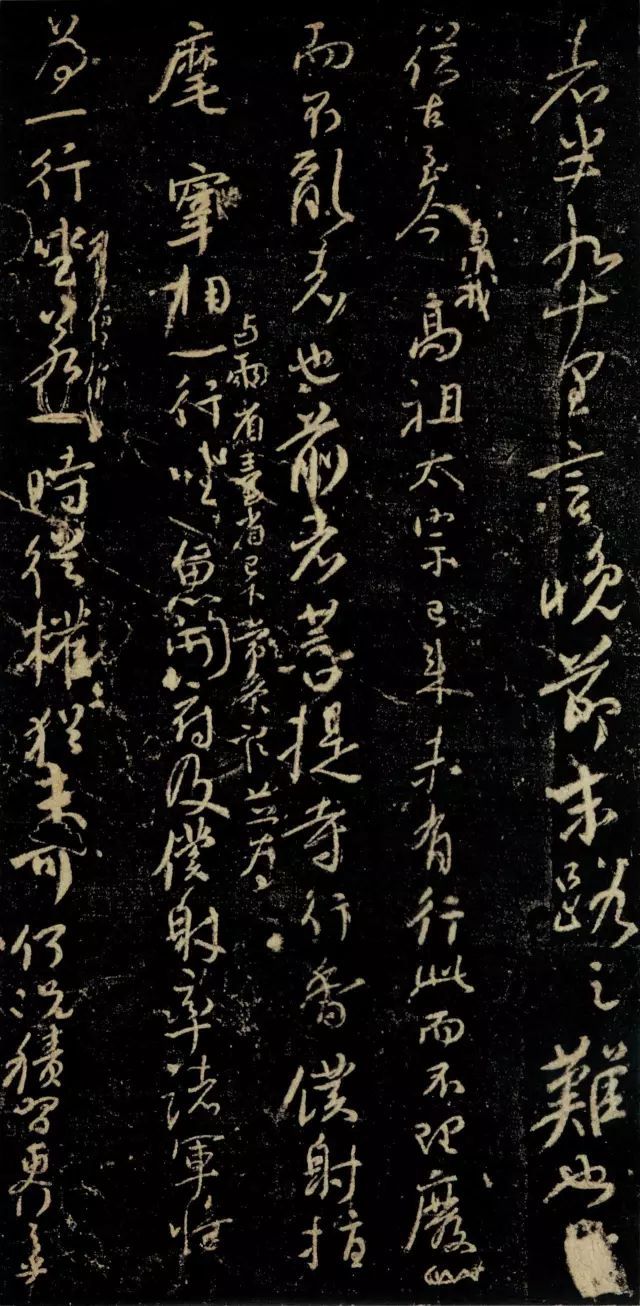 者半九十里言晚節末路之難也
從古至今臮我高祖太宗已來未有行此而不理廢此
而不亂者也前者菩提寺行香僕射指
麾宰相與兩省臺省已下常參官並為一行坐魚開府及僕射率諸軍將
為一行坐若一時從權猶未可何況積習更行之乎